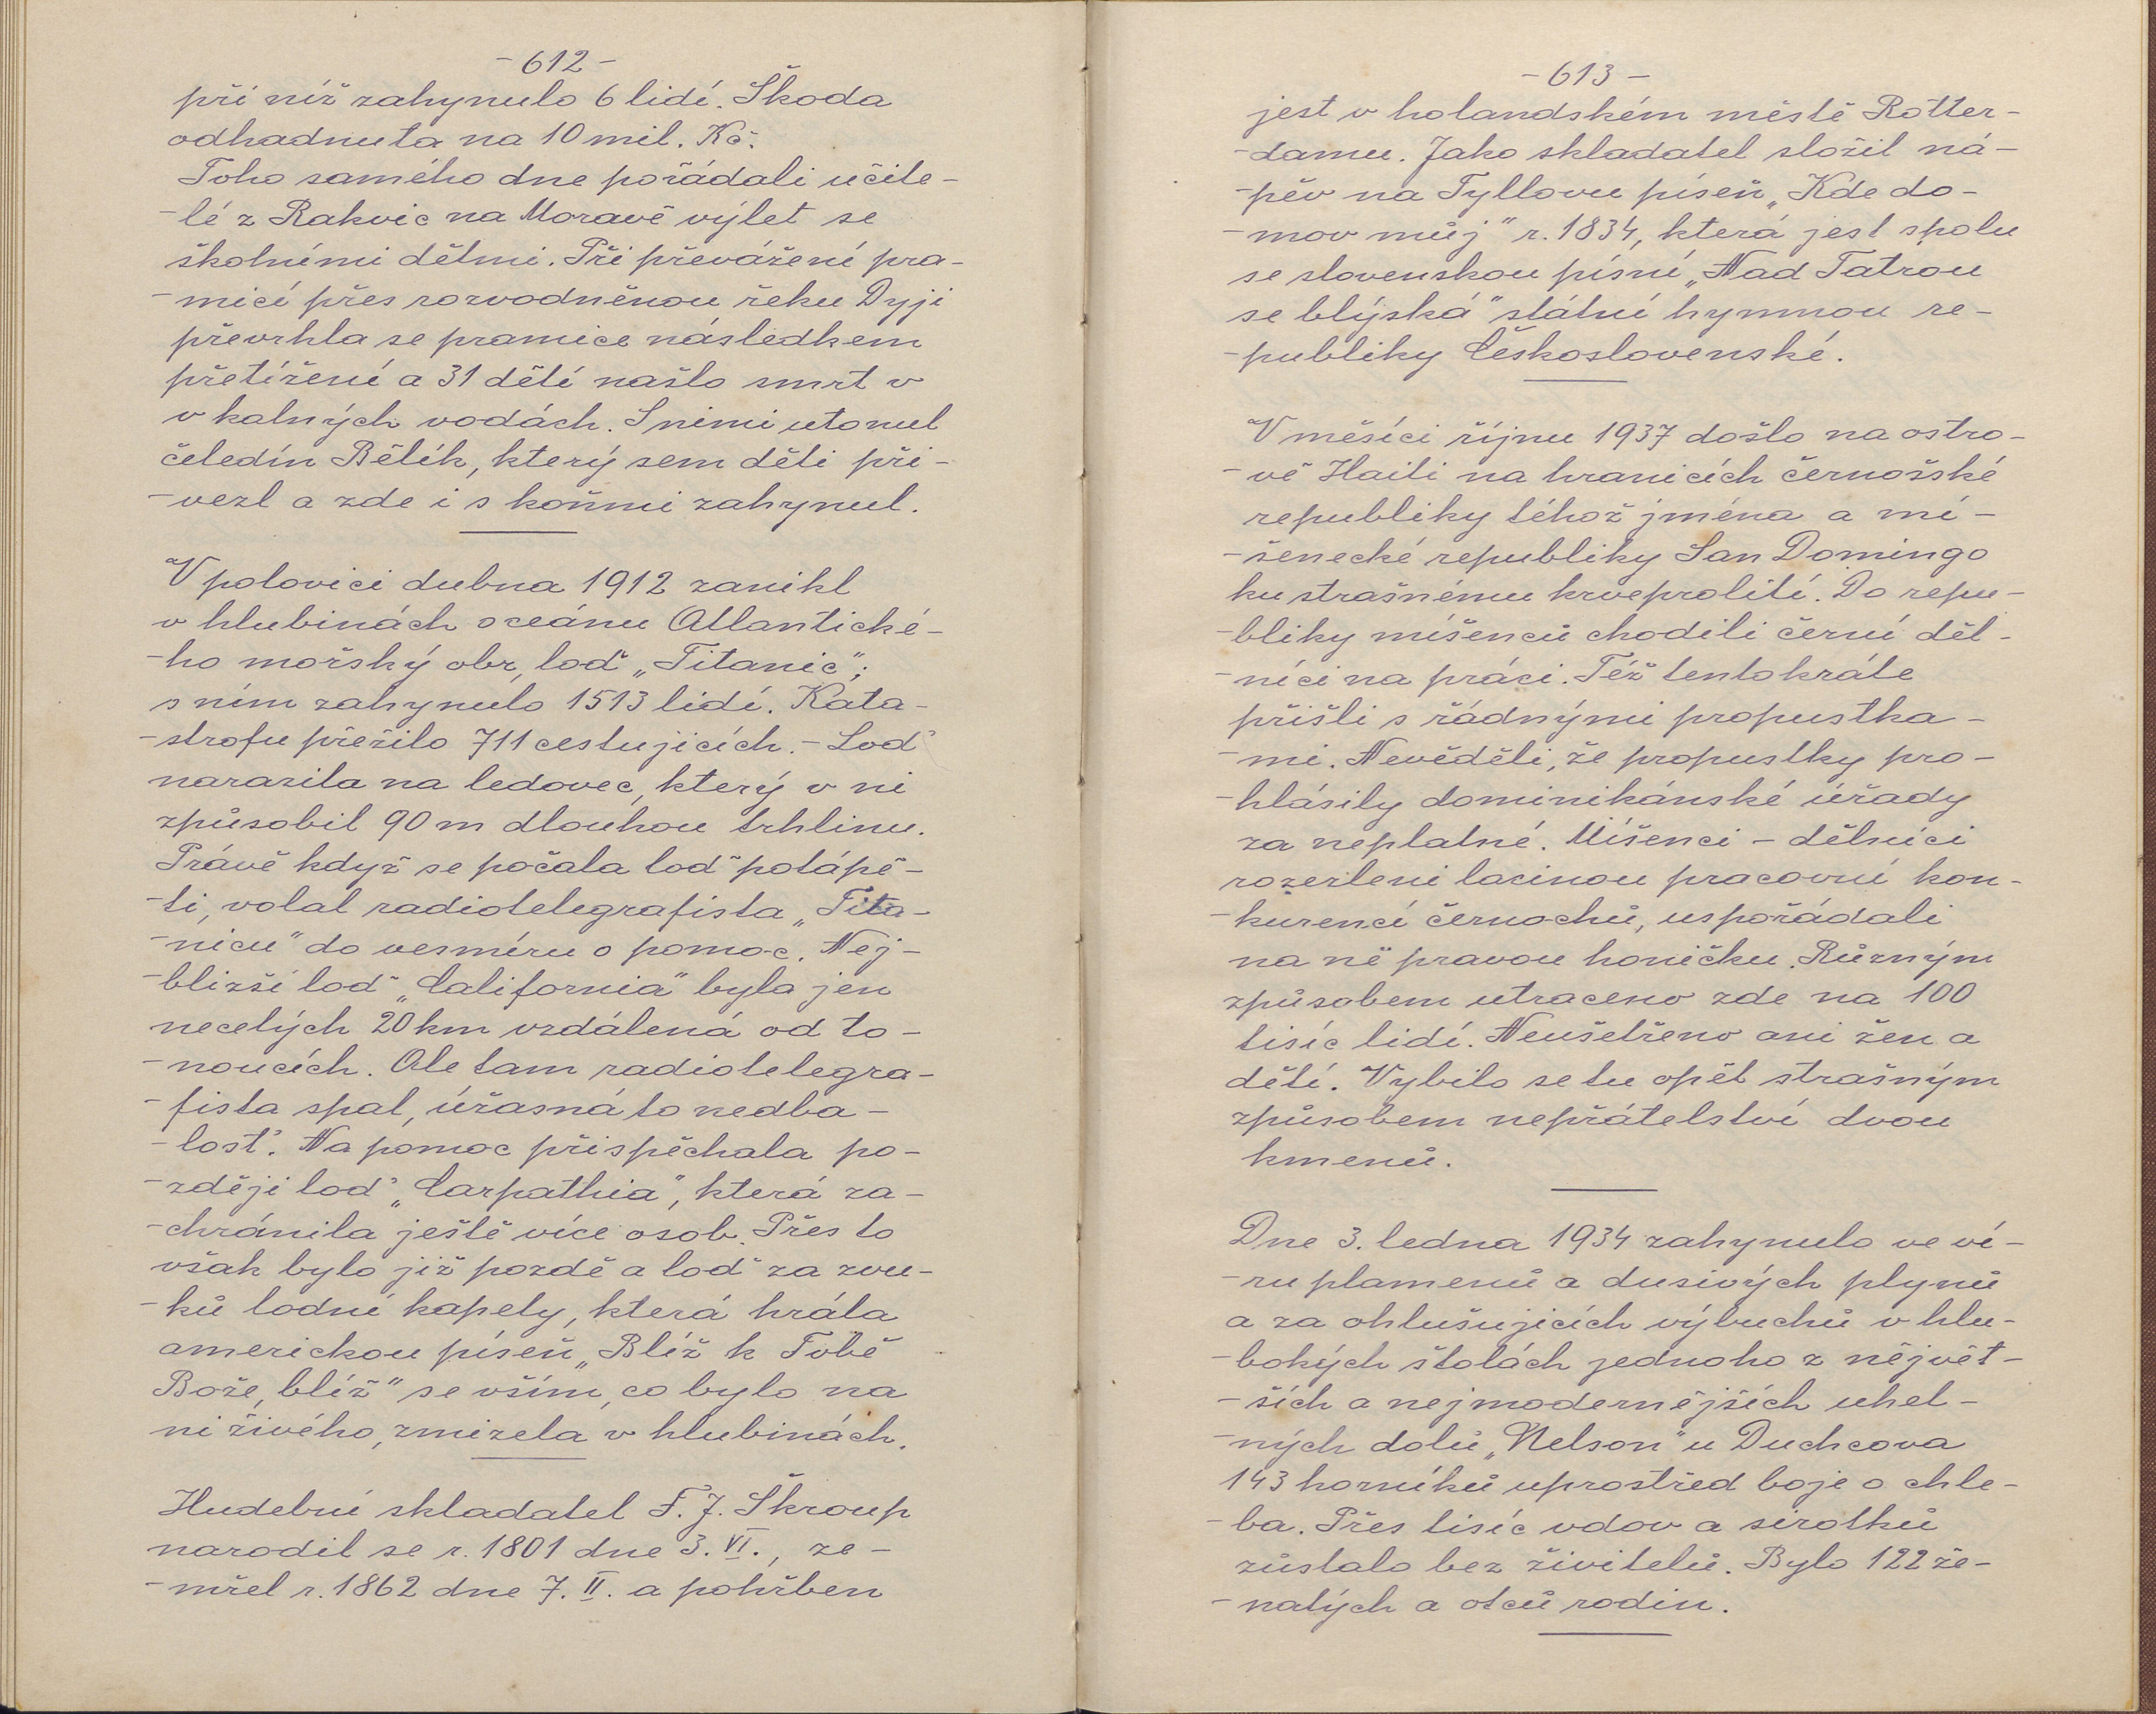 -612-
při níž zahynulo 6 lidí. Škoda
odhadnuta na 10 mil. Kč.
Toho samého dne pořádali učite-
-lé z Rakvic na Moravě výlet se
školními dětmi. Při převážení pra-
-micí přes rozvodněnou řeku Dyji
převrhla se pramice následkem
přetížení a 31 dětí našlo smrt v
v kalných vodách. S nimi utonul
čeledín Bělík, který sem děti při-
-vezl a zde i s koňmi zahynul.
V polovici dubna 1912 zanikl
v hlubinách oceánu Atlantické-
-ho mořský obr, loď „Titanic“;
s ním zahynulo 1513 lidí. Kata-
-strofu přežilo 711 cestujících. - Loď
narazila na ledovec, který v ni
způsobil 90 m dlouhou trhlinu.
Právě když se počala loď potápě-
-ti, volal radiotelegrafista „Tita-
-nicu“ do vesmíru o pomoc. Nej-
-blizší loď „California“ byla jen
necelých 20 km vzdálená od to-
-noucích. Ale tam radiotelegra-
-fista spal, úžasná to nedba-
-losť. Na pomoc přispěchala po-
-zději loď „Carpathia“, která za-
-chránila ještě více osob. Přes to
však bylo již pozdě a loď za zvu-
-ků lodní kapely, která hrála
americkou píseň „Blíž k Tobě
Bože, blíž“ se vším, co bylo na
ni živého, zmizela v hlubinách.
Hudební skladatel F. J. Škroup
narodil se r. 1801 dne 3. VI., ze-
-mřel r. 1862 dne 7. II. a pohřben
-613-
jest v holandském městě Rotter-
-damu. Jako skladatel složil ná-
-pěv na Tyllovu píseň „Kde do-
-mov můj“ r. 1834, která jest spolu
se slovenskou písní „Nad Tatrou
se blýská“ státní hymnou re-
-publiky Československé.
V měsíci říjnu 1937 došlo na ostro-
-vě Haiti na hranicích černošské
republiky téhož jména a mí-
-šenecké republiky San Domingo
ku strašnému krveprolití. Do repu-
-bliky míšenců chodili černí děl-
-níci na práci. Též tentokráte
přišli s řádnými propustka-
-mi. Nevěděli, že propustky pro-
-hlásily dominikánské úřady
za neplatné. Míšenci - dělníci
rozezleni lacinou pracovní kon-
-kurencí černochů, uspořádali
na ně pravou honičku. Různým
způsobem utraceno zde na 100
tisíc lidí. Neušetřeno ani žen a
dětí. Vybilo se tu opět strašným
způsobem nepřátelství dvou
kmenů.
Dne 3. ledna 1934 zahynulo ve ví-
-ru plamenů a dusivých plynů
a za ohlušujících výbuchů v hlu-
-bokých štolách jednoho z nějvět-
-ších a nejmodernějších uhel-
-ných dolů „Nelson“ u Duchcova
143 horníků uprostřed boje o chle-
-ba. Přes tisíc vdov a sirotků
zůstalo bez živitelů. Bylo 122 že-
-natých a otců rodin.